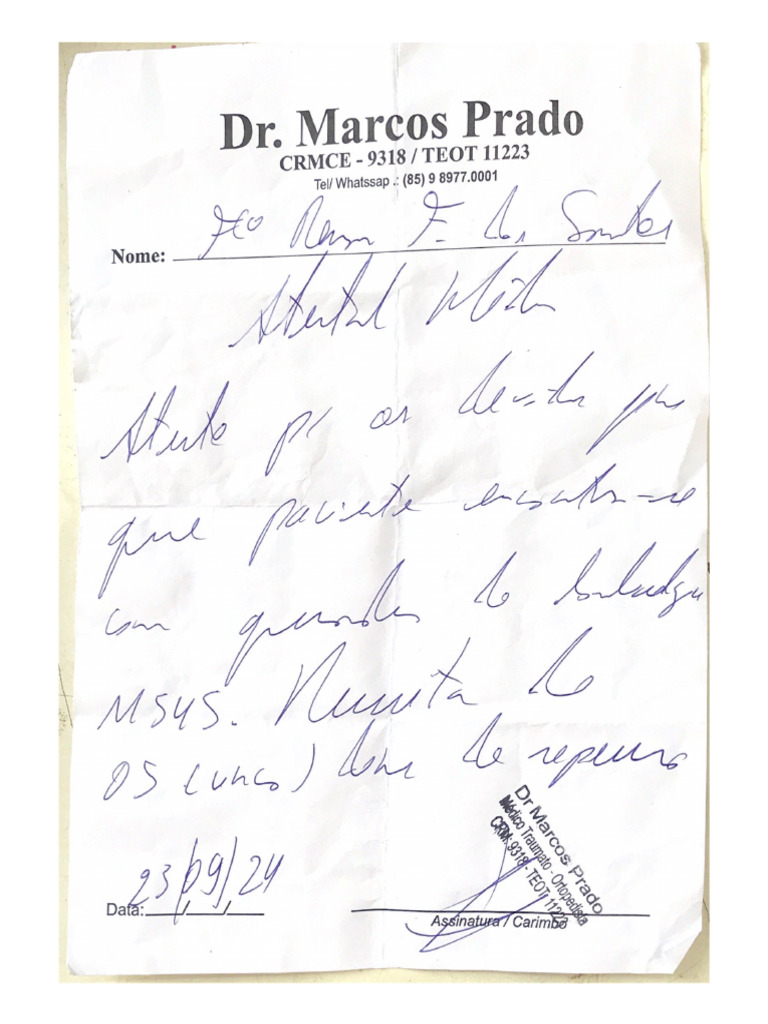 Dr. Marcos Prado
CRMCE - 9318 / TEOT 11223
Tel/ Whatssap .: (85) 9 8977.0001
Nome: Fco F. dos Santos
Atestado Médico
Atesto p/ os devidos fins
que paciente encontra-se
com quadro de lombalgia
M545. Necessita de
05 (cinco) dias de repouso
Data: 23/09/24
Assinatura / Carimbo
Dr Marcos Prado
Médico Traumato - Ortopedista
CRM: 9318 - TEOT: 11223